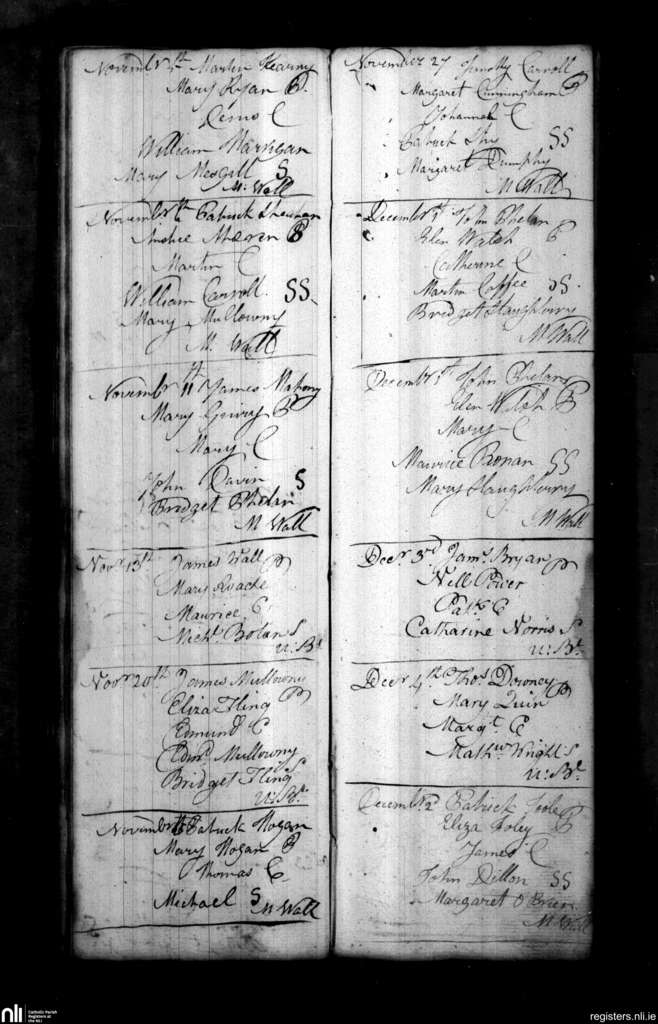 Novembr 4th Martin Kearny
Mary Ryan P.
Denis C
William Markigan
Mary S
M. Wall
Novembr Patrick Sheehan
P
Martin C
William Carroll SS
Mary Mullowny
M. Wall
Novembr 11th James Mahony
Mary P
Mary C
John Davin S
Bridget Phelan
M Wall
Novr 13th James Wall P
Mary Roache
Maurice C
Michl Bolan S
Novr 20th James Mullowny
Eliza Fling P
Edmund C
Edmd Mullowny
Bridget Fling S
Novembr Patrick Hogan
Mary Hogan P
Thomas C
Michael S
M Wall
November 27 Timothy Carroll
Margaret Cunningham P
Johannah C
Patrick Shy SS
Margaret Dumphy
M Wall
Decembr 1st John Phelan
Elen Walsh P
Catherine C
Martin Coffee SS.
Bridget
M Wall
Decembr 1st John Phelan
Elen Walsh P
Mary C
Maurice Ronan SS
Mary
M Wall
Decr 3rd Jams Bryan P
Nell Power
Patk C
Catharine Norris S
Decr 4th Thos Downey P
Mary Quin
Margt C
Mathw Wright S
Decembr 12 Patrick
Eliza Foley P
James C
John Dillon SS
Margaret O Brien
M Wall
nli
Catholic Parish
Registers at
the NLI
registers.nli.ie